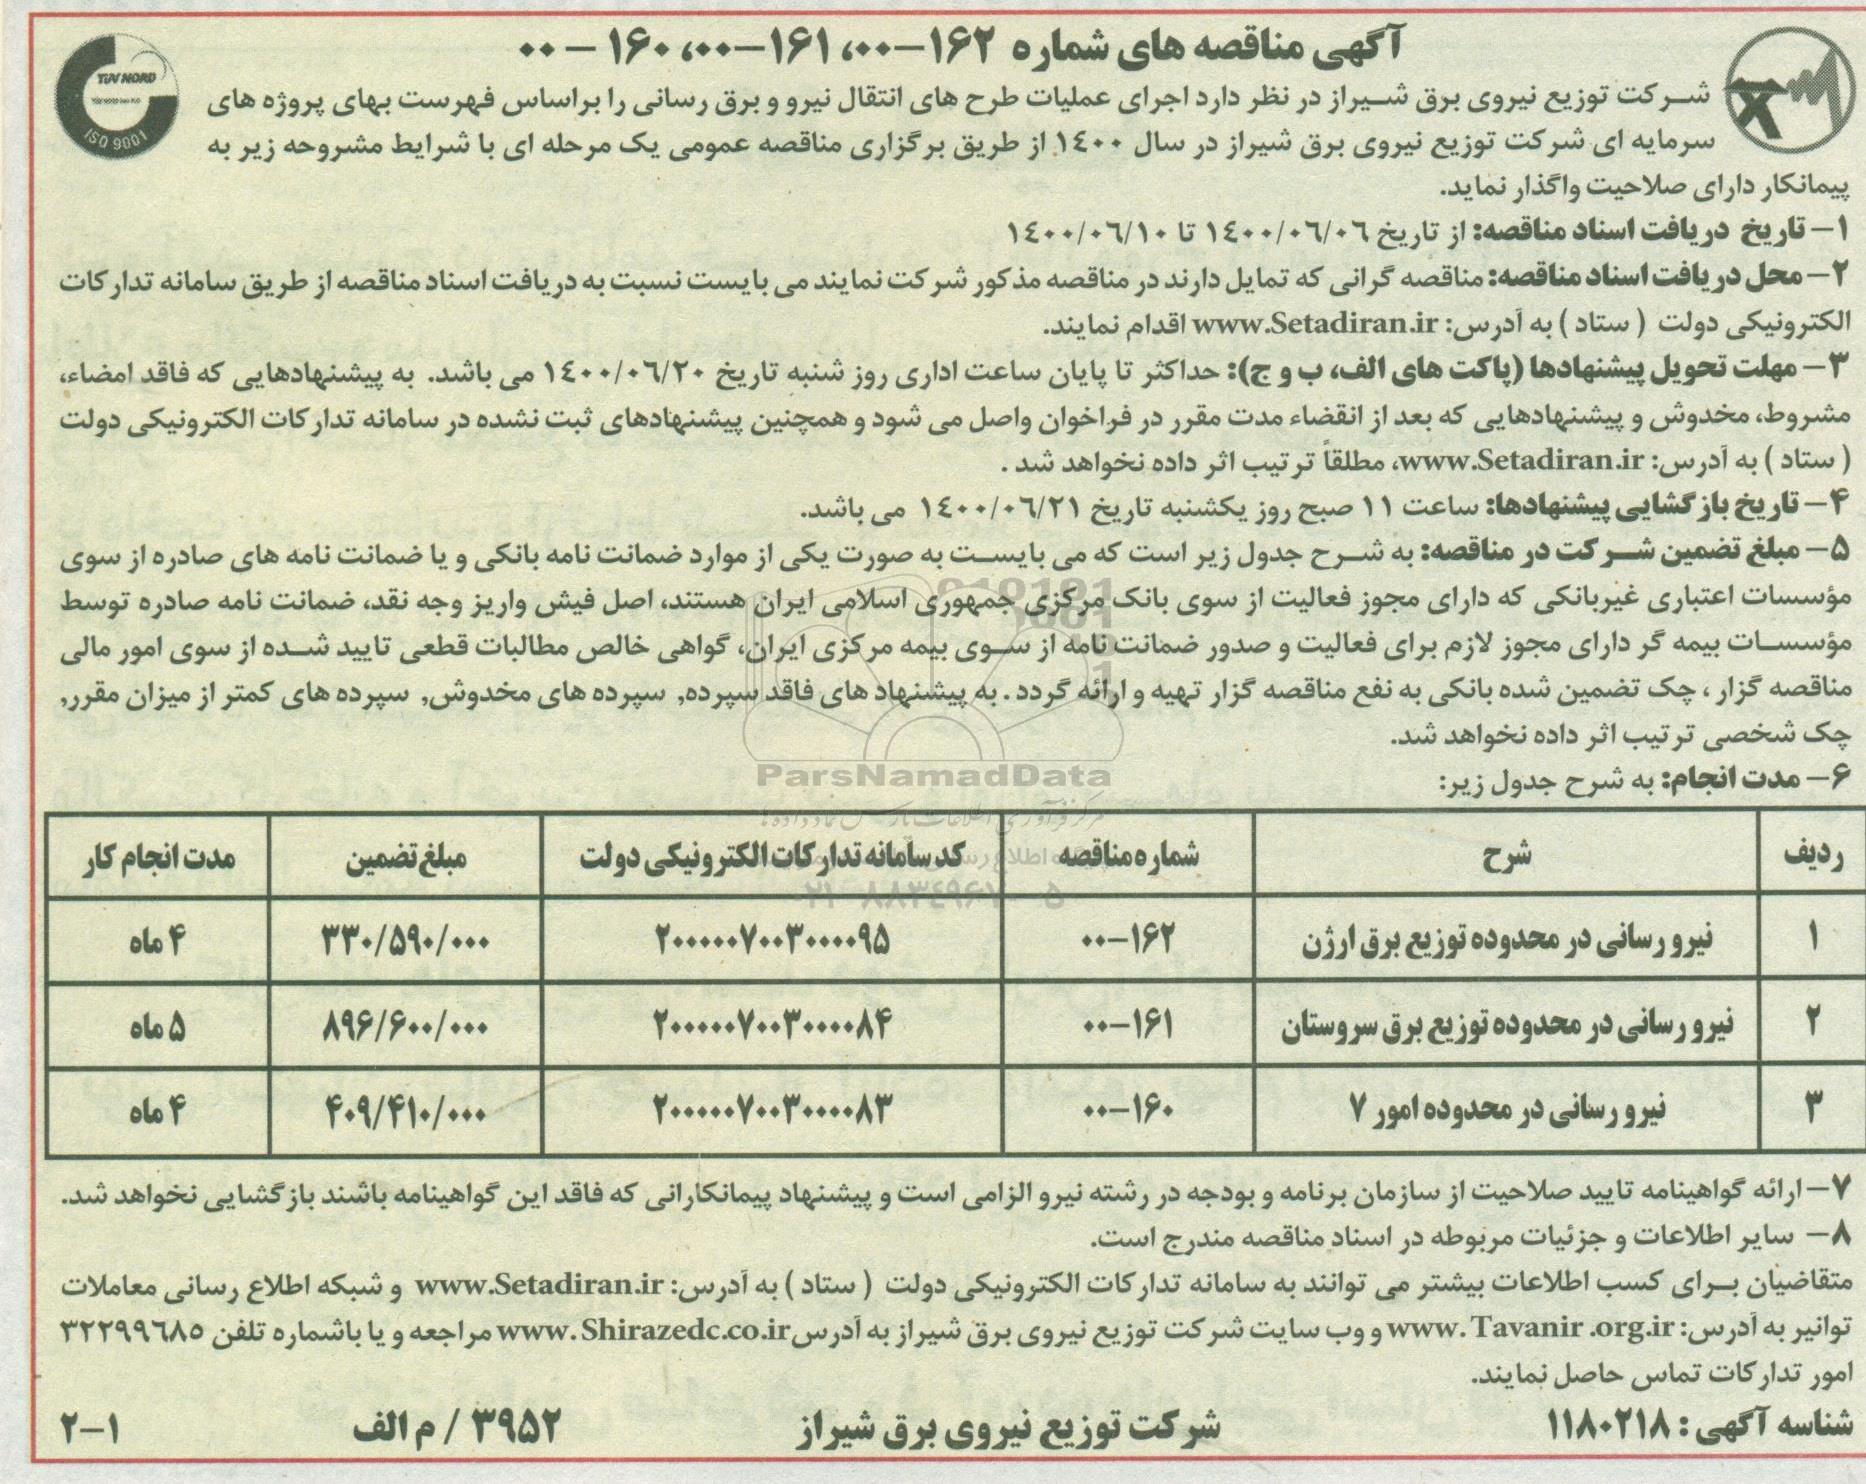 آگهی مناقصه های شماره ۱۶۲-۰۰، ۱۶۱-۰۰، ۱۶۰ - ۰۰
TÜV NORD
ISO 9001
شرکت توزیع نیروی برق شیراز در نظر دارد اجرای عملیات طرح های انتقال نیرو و برق رسانی را براساس فهرست بهای پروژه های
سرمایه ای شرکت توزیع نیروی برق شیراز در سال ۱۴۰۰ از طریق برگزاری مناقصه عمومی یک مرحله ای با شرایط مشروحه زیر به
پیمانکار دارای صلاحیت واگذار نماید.
۱- تاریخ دریافت اسناد مناقصه: از تاریخ ۱۴۰۰/۰۶/۰۶ تا ۱۴۰۰/۰۶/۱۰
۲- محل دریافت اسناد مناقصه: مناقصه گرانی که تمایل دارند در مناقصه مذکور شرکت نمایند می بایست نسبت به دریافت اسناد مناقصه از طریق سامانه تدارکات
الکترونیکی دولت ( ستاد ) به آدرس: www.Setadiran.ir اقدام نمایند.
۳- مهلت تحویل پیشنهادها (پاکت های الف، ب و ج): حداکثر تا پایان ساعت اداری روز شنبه تاریخ ۱۴۰۰/۰۶/۲۰ می باشد. به پیشنهادهایی که فاقد امضاء،
مشروط، مخدوش و پیشنهادهایی که بعد از انقضاء مدت مقرر در فراخوان واصل می شود و همچنین پیشنهادهای ثبت نشده در سامانه تدارکات الکترونیکی دولت
( ستاد ) به آدرس: www.Setadiran.ir، مطلقاً ترتیب اثر داده نخواهد شد .
۴- تاریخ بازگشایی پیشنهادها: ساعت ۱۱ صبح روز یکشنبه تاریخ ۱۴۰۰/۰۶/۲۱ می باشد.
۵- مبلغ تضمین شرکت در مناقصه: به شرح جدول زیر است که می بایست به صورت یکی از موارد ضمانت نامه بانکی و یا ضمانت نامه های صادره از سوی
مؤسسات اعتباری غیربانکی که دارای مجوز فعالیت از سوی بانک مرکزی جمهوری اسلامی ایران هستند، اصل فیش واریز وجه نقد، ضمانت نامه صادره توسط
مؤسسات بیمه گر دارای مجوز لازم برای فعالیت و صدور ضمانت نامه از سوی بیمه مرکزی ایران، گواهی خالص مطالبات قطعی تایید شده از سوی امور مالی
مناقصه گزار ، چک تضمین شده بانکی به نفع مناقصه گزار تهیه و ارائه گردد . به پیشنهاد های فاقد سپرده, سپرده های مخدوش, سپرده های کمتر از میزان مقرر,
چک شخصی ترتیب اثر داده نخواهد شد.
ParsNamadData
۶- مدت انجام: به شرح جدول زیر:
ردیف شرح شماره مناقصه کد سامانه تدارکات الکترونیکی دولت مبلغ تضمین مدت انجام کار
۱ نیرو رسانی در محدوده توزیع برق ارژن ۱۶۲-۰۰ ۲۰۰۰۰۰۷۰۰۳۰۰۰۰۹۵ ۳۳۰/۵۹۰/۰۰۰ ۴ ماه
۲ نیرو رسانی در محدوده توزیع برق سروستان ۱۶۱-۰۰ ۲۰۰۰۰۰۷۰۰۳۰۰۰۰۸۴ ۸۹۶/۶۰۰/۰۰۰ ۵ ماه
۳ نیرو رسانی در محدوده امور ۷ ۱۶۰-۰۰ ۲۰۰۰۰۰۷۰۰۳۰۰۰۰۸۳ ۴۰۹/۴۱۰/۰۰۰ ۴ ماه
۷- ارائه گواهینامه تایید صلاحیت از سازمان برنامه و بودجه در رشته نیرو الزامی است و پیشنهاد پیمانکارانی که فاقد این گواهینامه باشند بازگشایی نخواهد شد.
۸- سایر اطلاعات و جزئیات مربوطه در اسناد مناقصه مندرج است.
متقاضیان برای کسب اطلاعات بیشتر می توانند به سامانه تدارکات الکترونیکی دولت ( ستاد ) به آدرس: www.Setadiran.ir و شبکه اطلاع رسانی معاملات
توانیر به آدرس: www. Tavanir .org.ir و وب سایت شرکت توزیع نیروی برق شیراز به آدرس www. Shirazedc.co.ir مراجعه و یا باشماره تلفن ۳۲۲۹۹۶۸۵
امور تدارکات تماس حاصل نمایند.
شناسه آگهی : ۱۱۸۰۲۱۸ شرکت توزیع نیروی برق شیراز ۳۹۵۲ / م الف ۲-۱